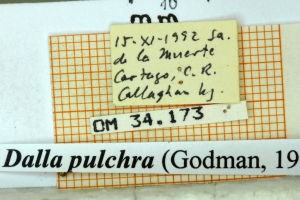 10
mm
15-XI-1992 Sa.
de la Muerte
Cartago, C.R.
Callaghan lg.
DM 34.173
Dalla pulchra (Godman, 19